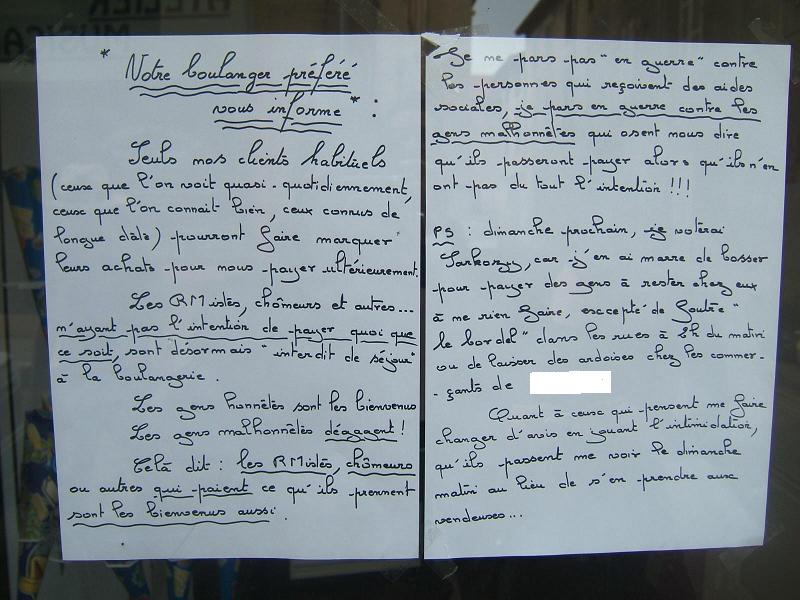 * Notre boulanger préféré
vous informe * :
Seuls nos clients habituels
(ceux que l'on voit quasi-quotidiennement,
ceux que l'on connait bien, ceux connus de
longue date) pourront faire marquer
leurs achats pour nous payer ultérieurement.
Les RMistes, chômeurs et autres...
n'ayant pas l'intention de payer quoi que
ce soit, sont désormais "interdit de séjour"
à la boulangerie.
Les gens honnêtes sont les bienvenus
Les gens malhonnêtes dégagent !
Celà dit : les RMistes, chômeurs
ou autres qui paient ce qu'ils prennent
sont les bienvenus aussi.
Je ne pars pas "en guerre" contre
les personnes qui reçoivent des aides
sociales, je pars en guerre contre les
gens malhonnêtes qui osent nous dire
qu'ils passeront payer alors qu'ils n'en
ont pas du tout l'intention !!!
PS : dimanche prochain, je voterai
Sarkozy, car j'en ai marre de bosser
pour payer des gens à rester chez eux
à ne rien faire, excepté de foutre "
le bordel" dans les rues à 2h du matin
ou de laisser des ardoises chez les commer-
-çants de
Quant à ceux qui pensent me faire
changer d'avis en jouant l'intimidation,
qu'ils passent me voir le dimanche
matin au lieu de s'en prendre aux
vendeuses...